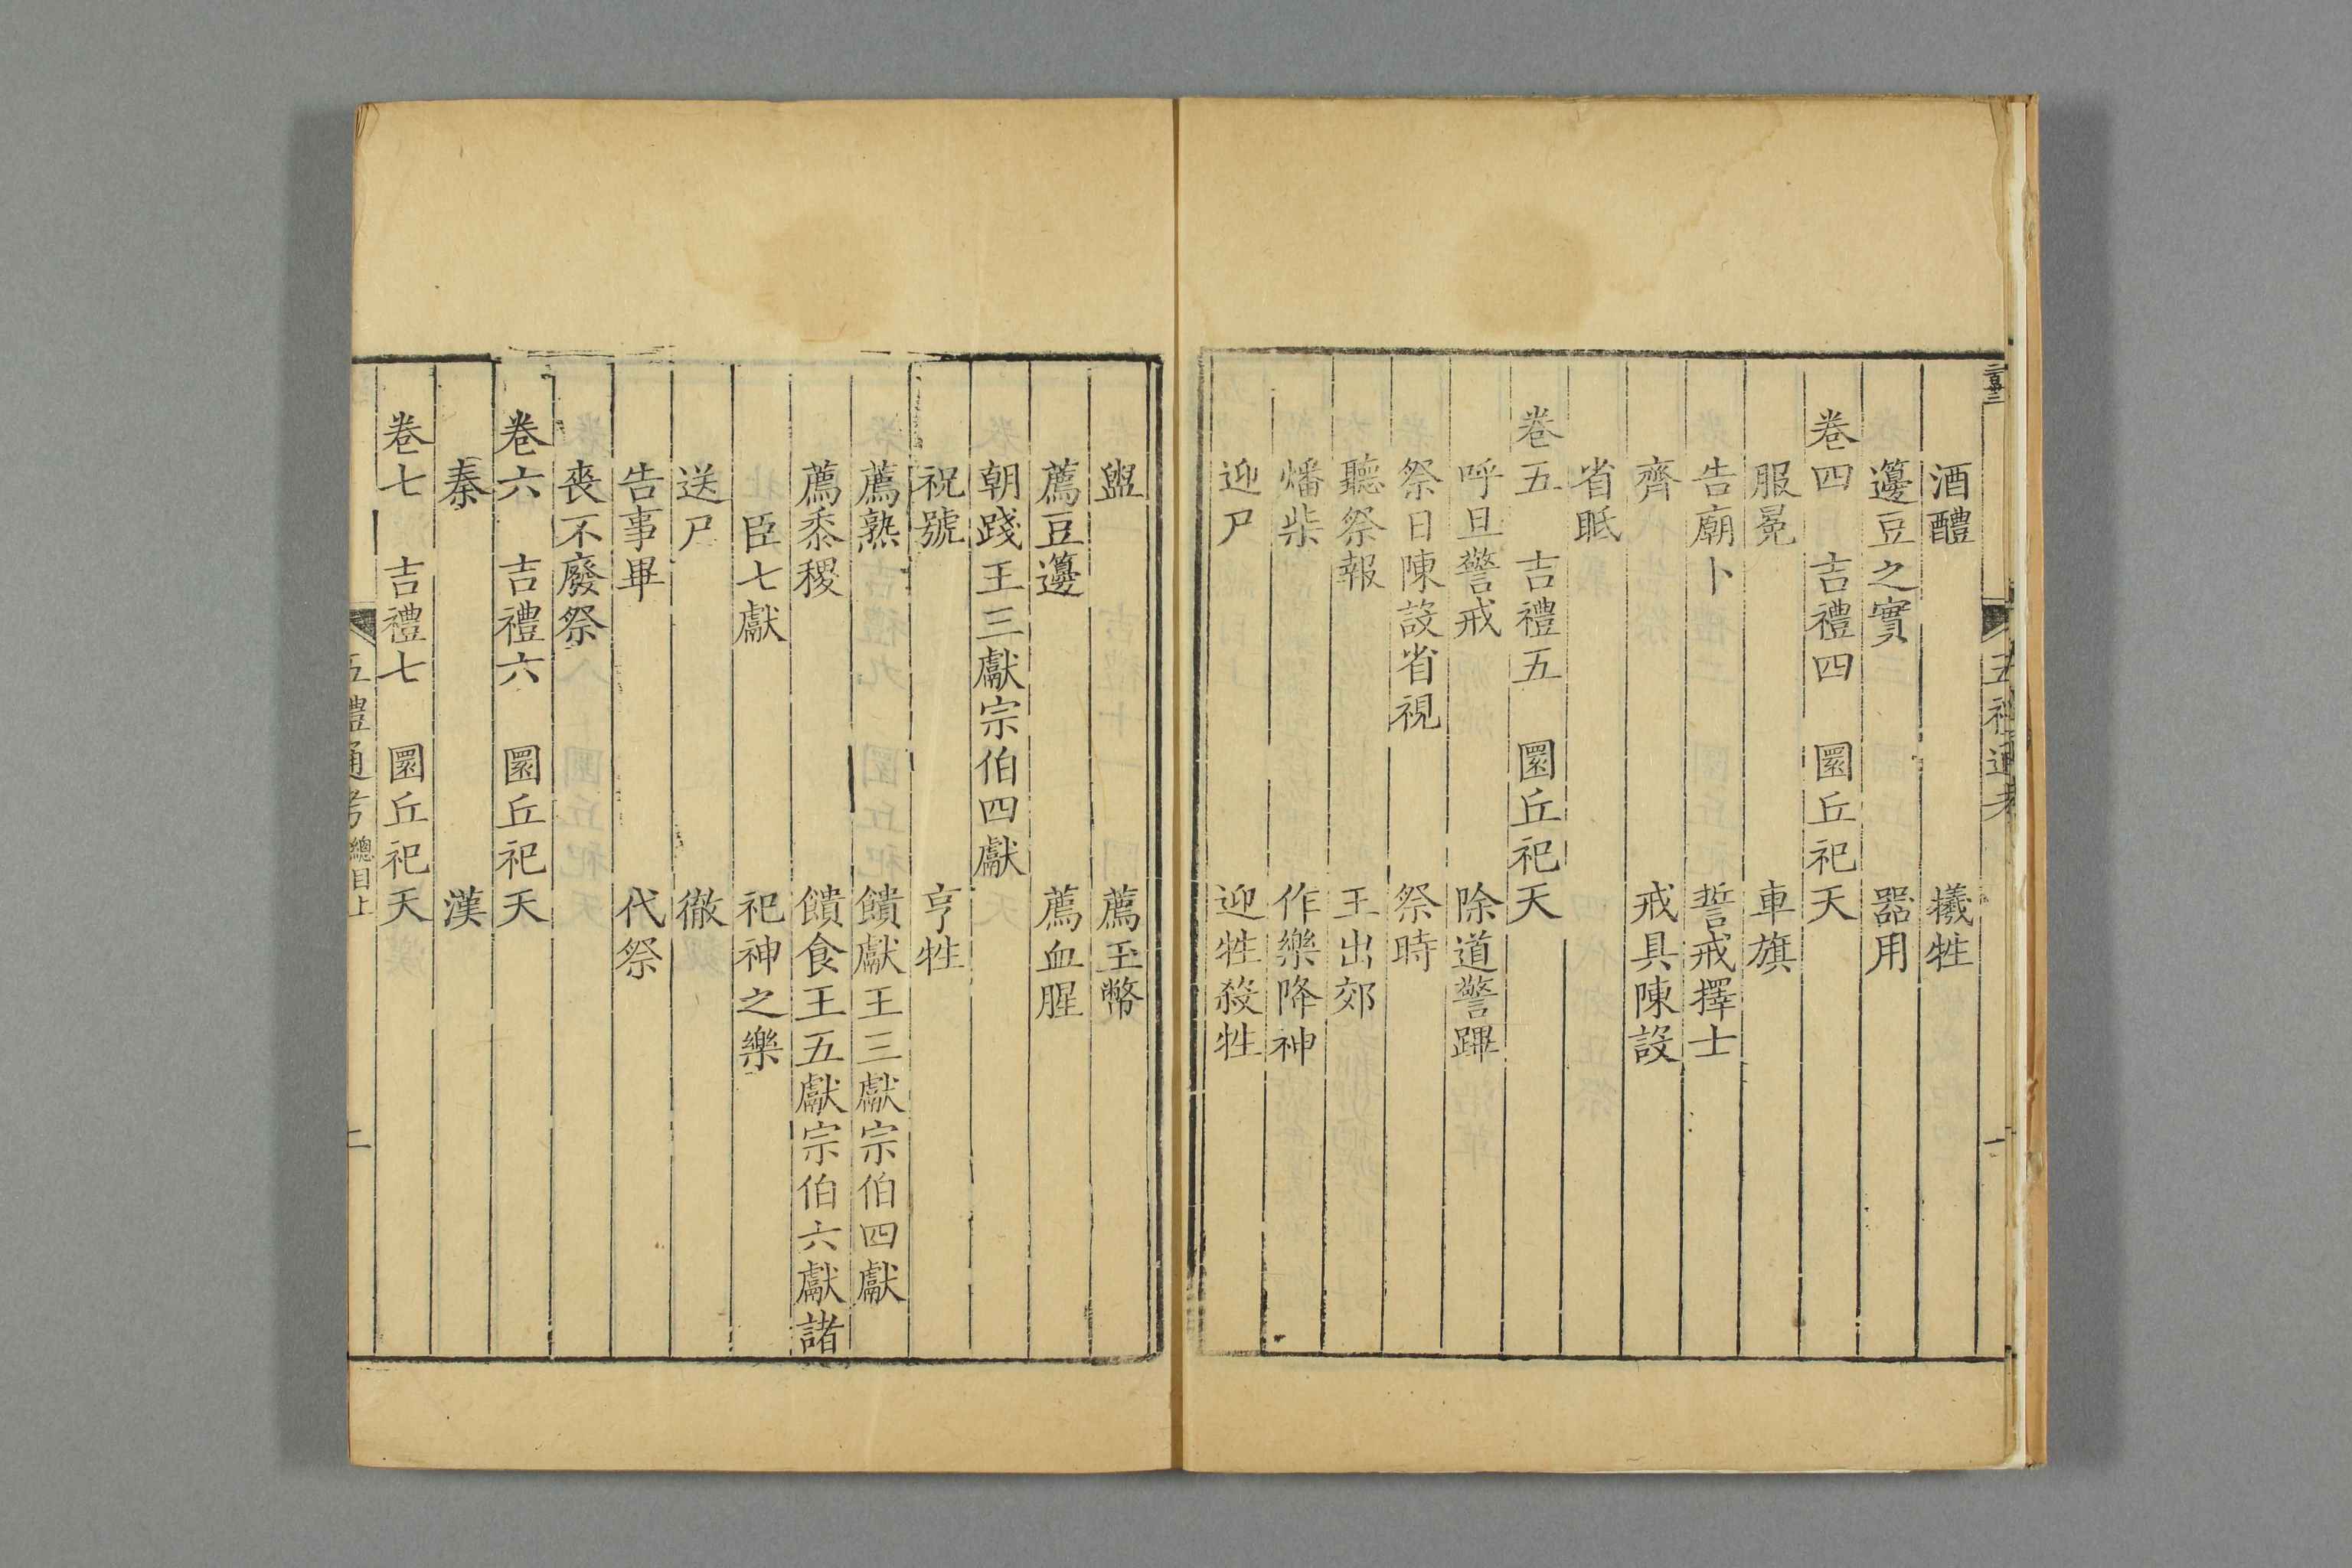 酒醴　犧牲
籩豆之實　器用
卷四　吉禮四　圜丘祀天
服冕　車旗
告廟卜　誓戒擇士
齊　戒具陳設
省眡
卷五　吉禮五　圜丘祀天
呼旦警戒　除道警蹕
祭日陳設省視　祭時
聽祭報　王出郊
燔柴　作樂降神
迎尸　迎牲殺牲
盥　薦玉幣
薦豆籩　薦血腥
朝踐王三獻宗伯四獻
祝號　亨牲
薦熟　饋獻王三獻宗伯四獻
薦黍稷　饋食王五獻宗伯六獻諸
臣七獻　祀神之樂
送尸　徹
告事畢　代祭
喪不廢祭
卷六　吉禮六　圜丘祀天
秦　漢
卷七　吉禮七　圜丘祀天
五禮通考　總目上　二